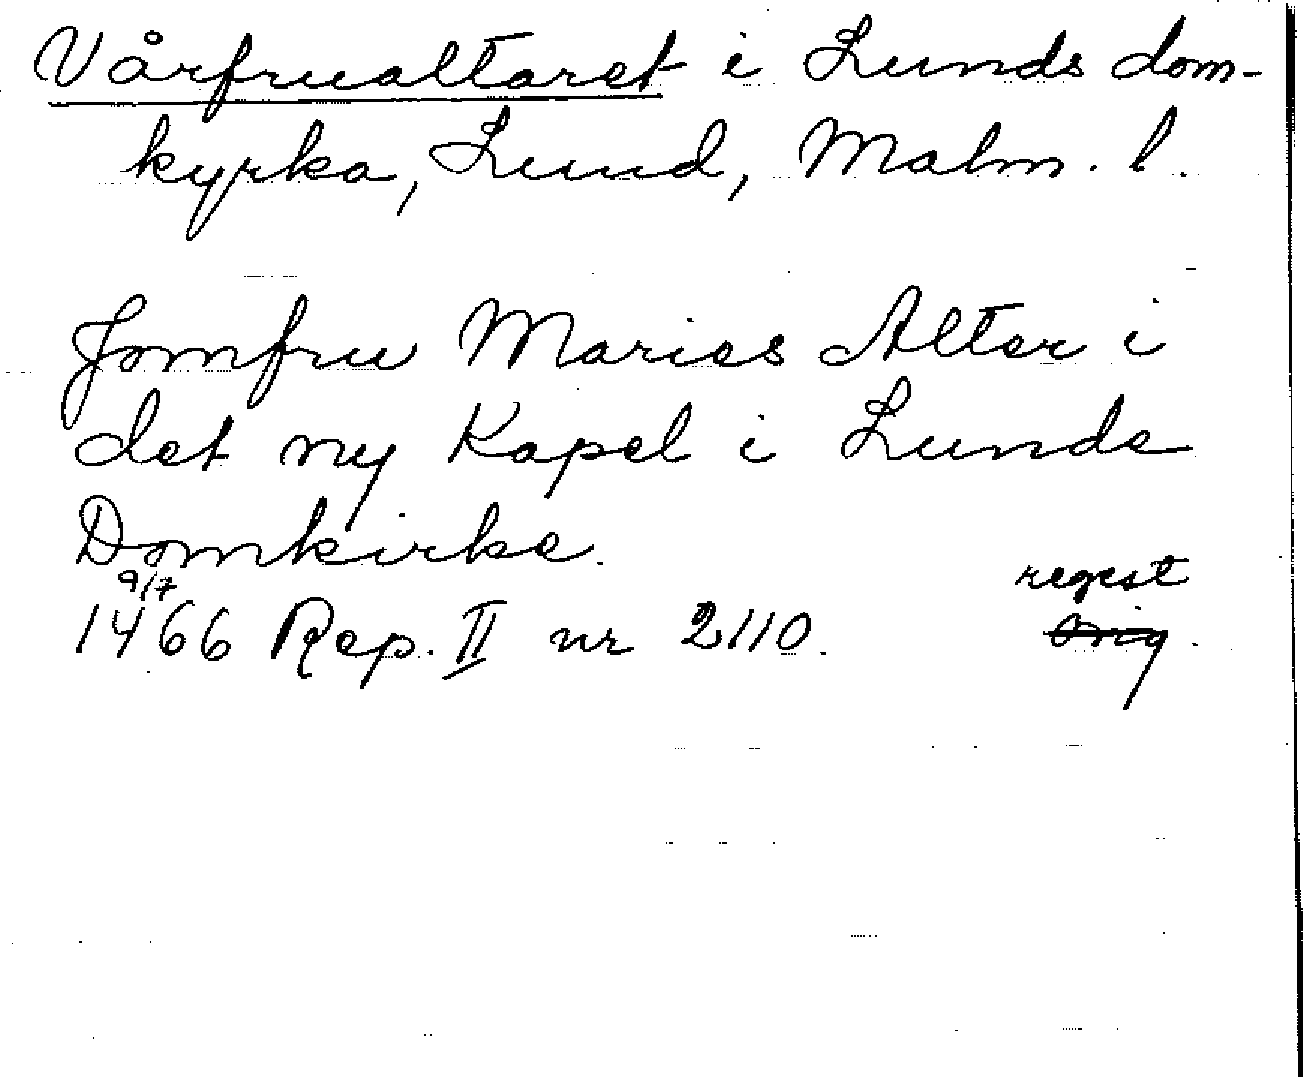 Vårfrualtaret i Lunds dom-
kyrka, Lund, Malm. l.
Jomfru Maries Alter i
det ny Kapel i Lunde
Domkirke.
9/7 regest
1466 Rep. II nr 2110. orig.